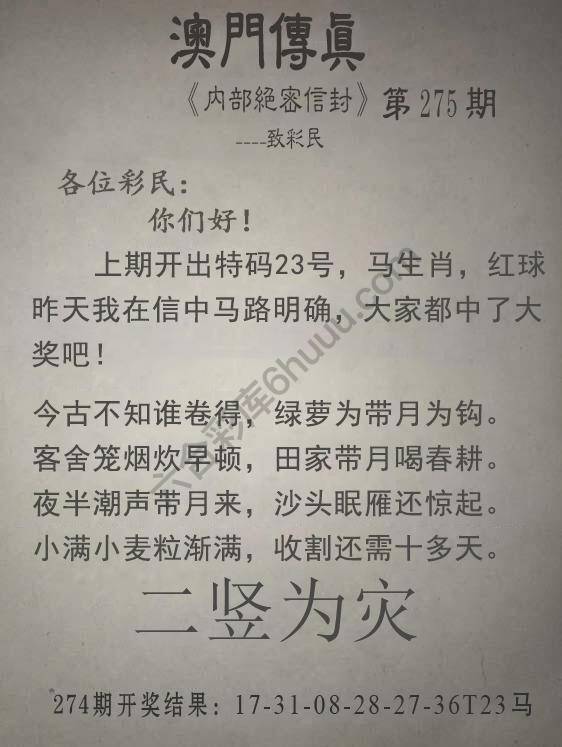 澳門傳眞
《内部絕密信封》第275期
----致彩民
各位彩民：
你们好！
上期开出特码23号，马生肖，红球
昨天我在信中马路明确，大家都中了大
奖吧！
今古不知谁卷得，绿萝为带月为钩。
客舍笼烟炊早顿，田家带月喝春耕。
夜半潮声带月来，沙头眠雁还惊起。
小满小麦粒渐满，收割还需十多天。
二竖为灾
274期开奖结果：17-31-08-28-27-36T23马
六合彩库6huuu.com